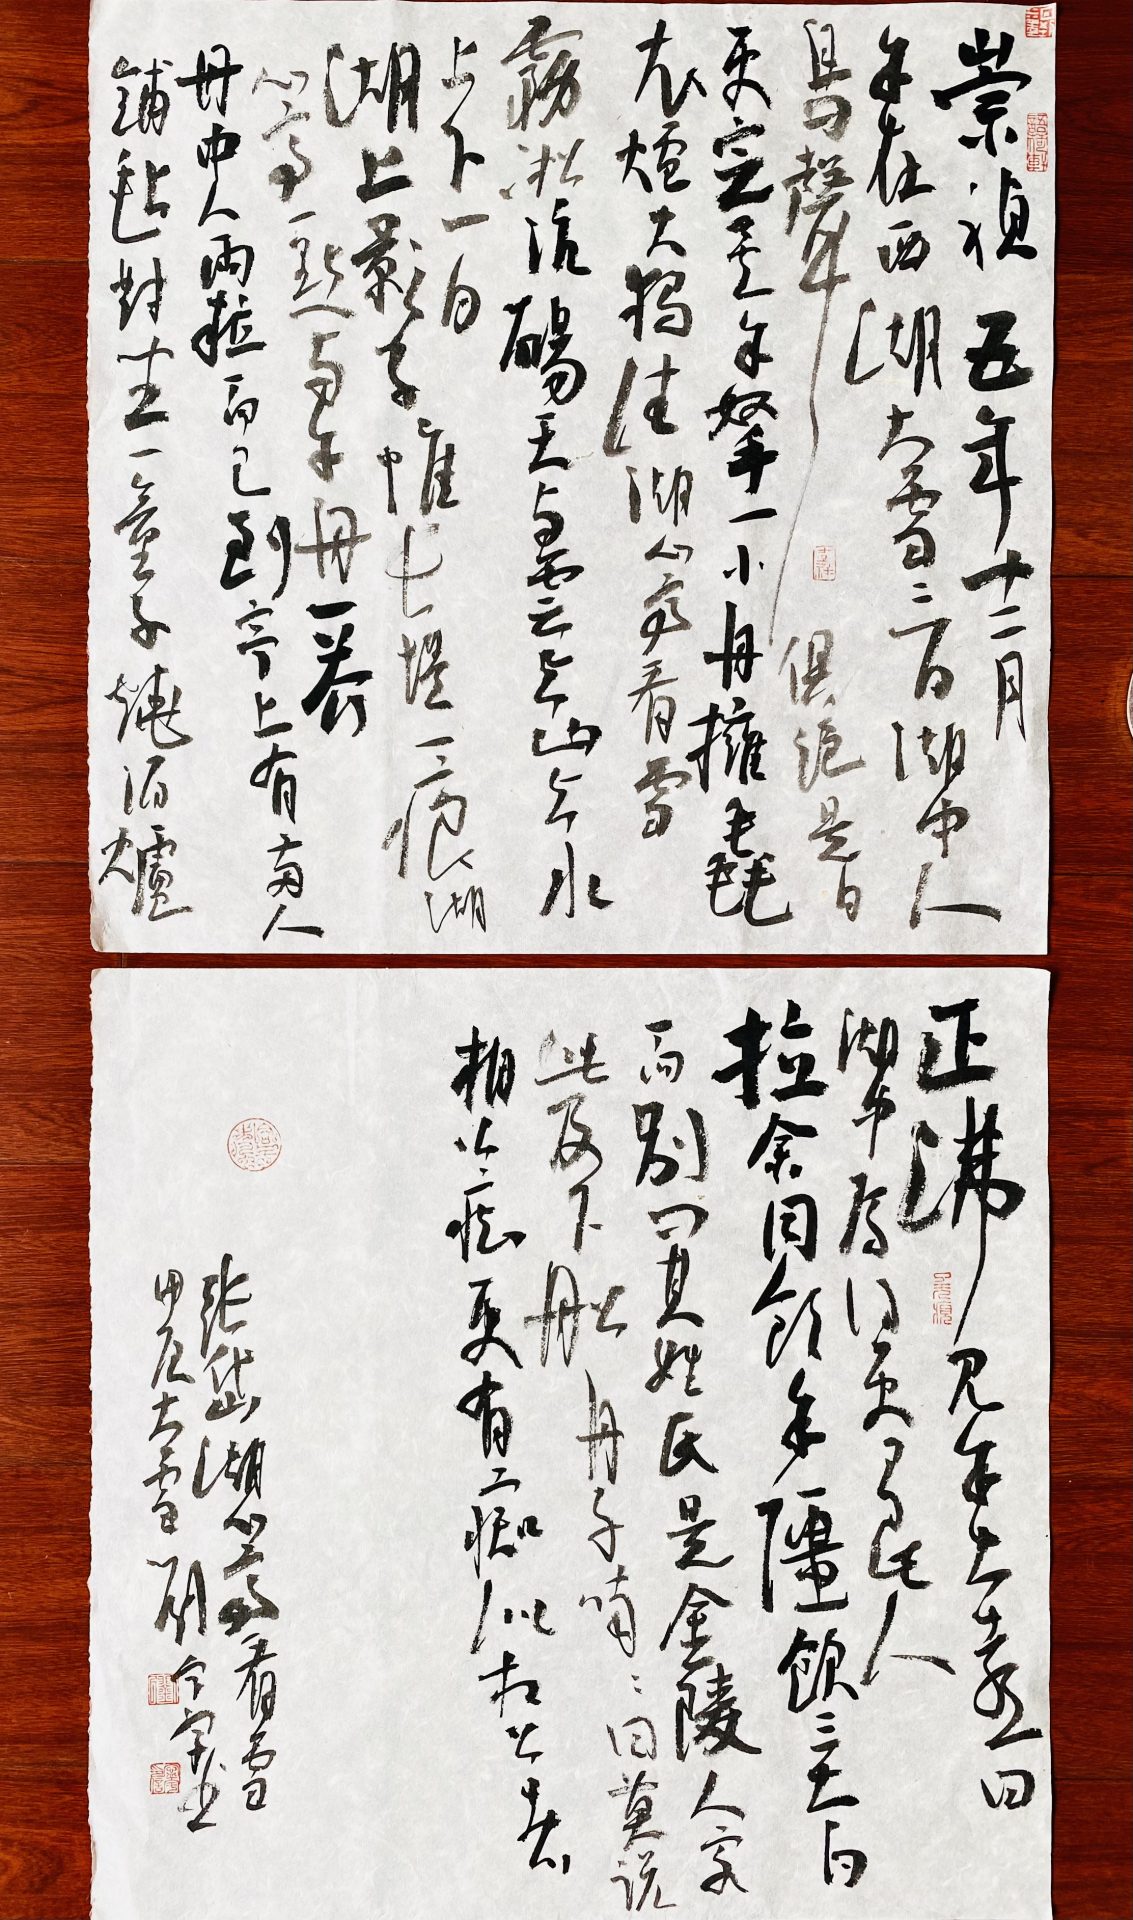 崇禎五年十二月
余住西湖大雪三日湖中人
鳥聲俱絕是日
更定矣余拏一小舟擁毳
衣爐火獨往湖心亭看雪
霧凇沆碭天與雲與山與水
上下一白
湖上影子惟長堤一痕湖
心亭一點與余舟一芥
舟中人兩粒而已到亭上有兩人
鋪氈對坐一童子燒酒爐
正沸見余大喜曰
湖中焉得更有此人
拉余同飲余彊飲三大白
而別問其姓氏是金陵人客
此及下船舟子喃喃曰莫說
相公癡更有癡似相公者
張岱湖心亭看雪
甲辰大雪